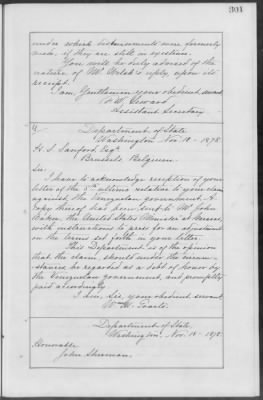 301
under which disbursements were formerly
made, if they are still in existence.
You will be duly advised of the
nature of Mr. Welsh's reply, upon its
receipt.
I am, Gentlemen, your obedient servant
F. W. Seward
Assistant Secretary
Department of State
Washington Nov. 12 - 1878
H. S. Sanford, Esqr.
Brussels Belgium.
Sir,
I have to acknowledge reception of your
letter of the 5th ultimo relative to your claim
against the Venezuelan government. A
copy thereof has been sent to Mr. John
Baker, the United States Minister at Caracas,
with instructions to press for an adjustment
on the terms set forth in your letter.
This Department is of the opinion
that the claim, should under the circum-
stances, be regarded as a debt of honor by
the Venezuelan government, and promptly
paid accordingly.
I am, Sir, your obedient servant
Wm. M. Evarts.
Department of State,
Washington, Nov. 12 - 1878.
Honorable
John Sherman.